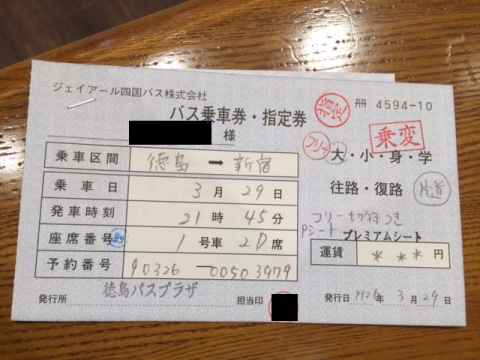 ジェイアール四国バス株式会社
バス乗車券・指定券
冊 4594-10
様
乗変
乗車区間 徳島 → 新宿
大・小・身・学
乗車日 3月29日
往路・復路 片道
発車時刻 21時45分
フリー切符つき
座席番号 1号車 2D席
Pシート プレミアムシート
予約番号 90326-00503979
運賃 ***円
発行所 徳島バスプラザ
担当印
発行日 3月29日